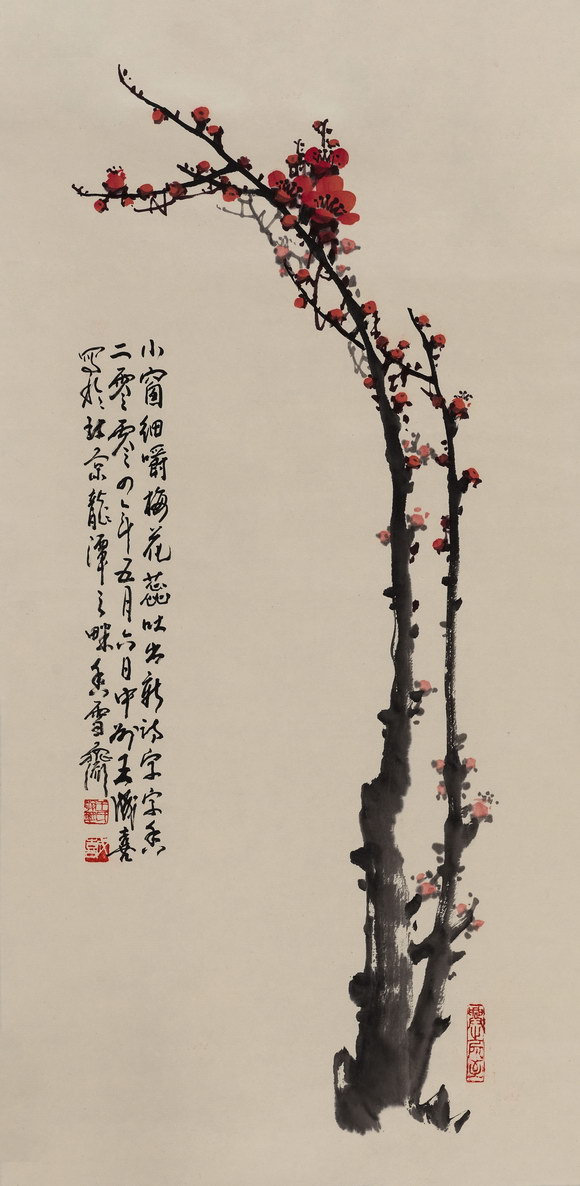 小窗细嚼梅花蕊吐出新诗字字香
二零零四年五月六日中州王成喜
写于北京龙潭之畔香雪斋